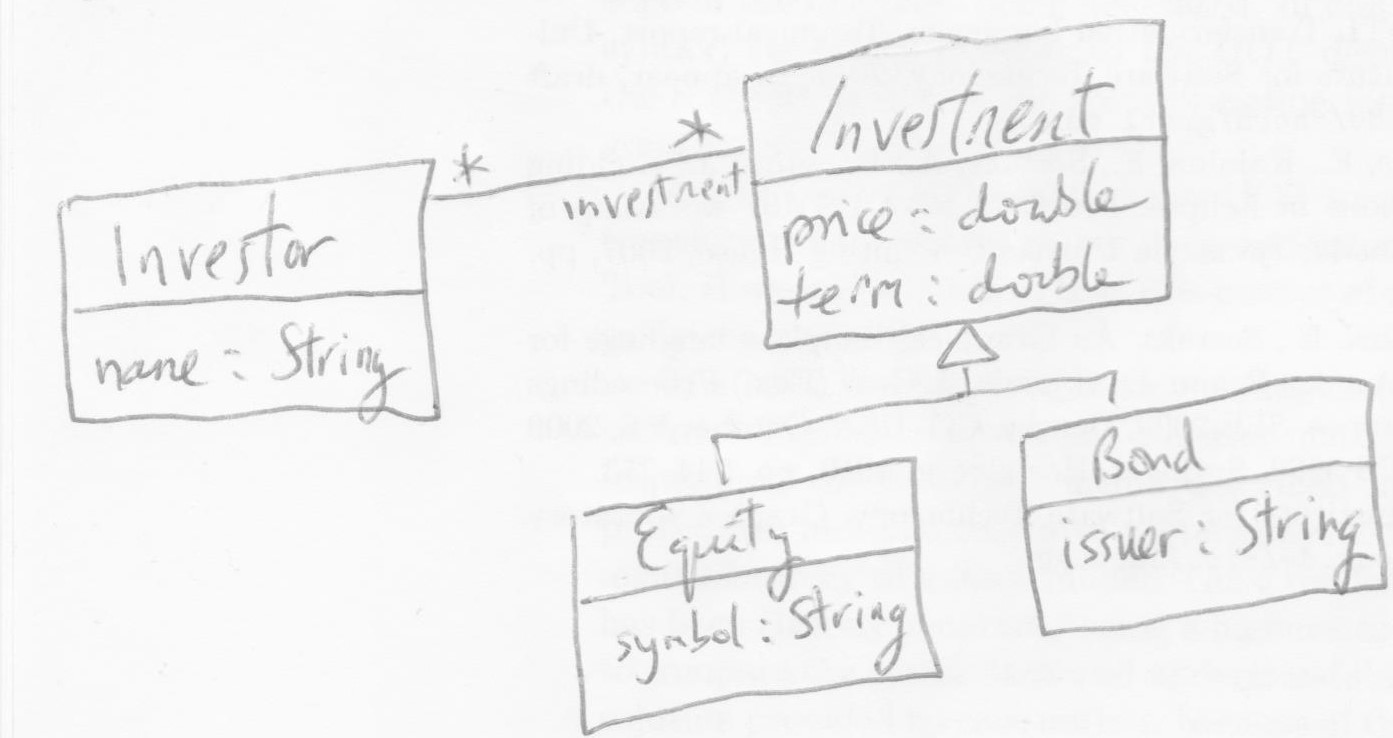 Investor
name : String
*
*
investment
Investment
price : double
term : double
Equity
symbol : String
Bond
issuer : String